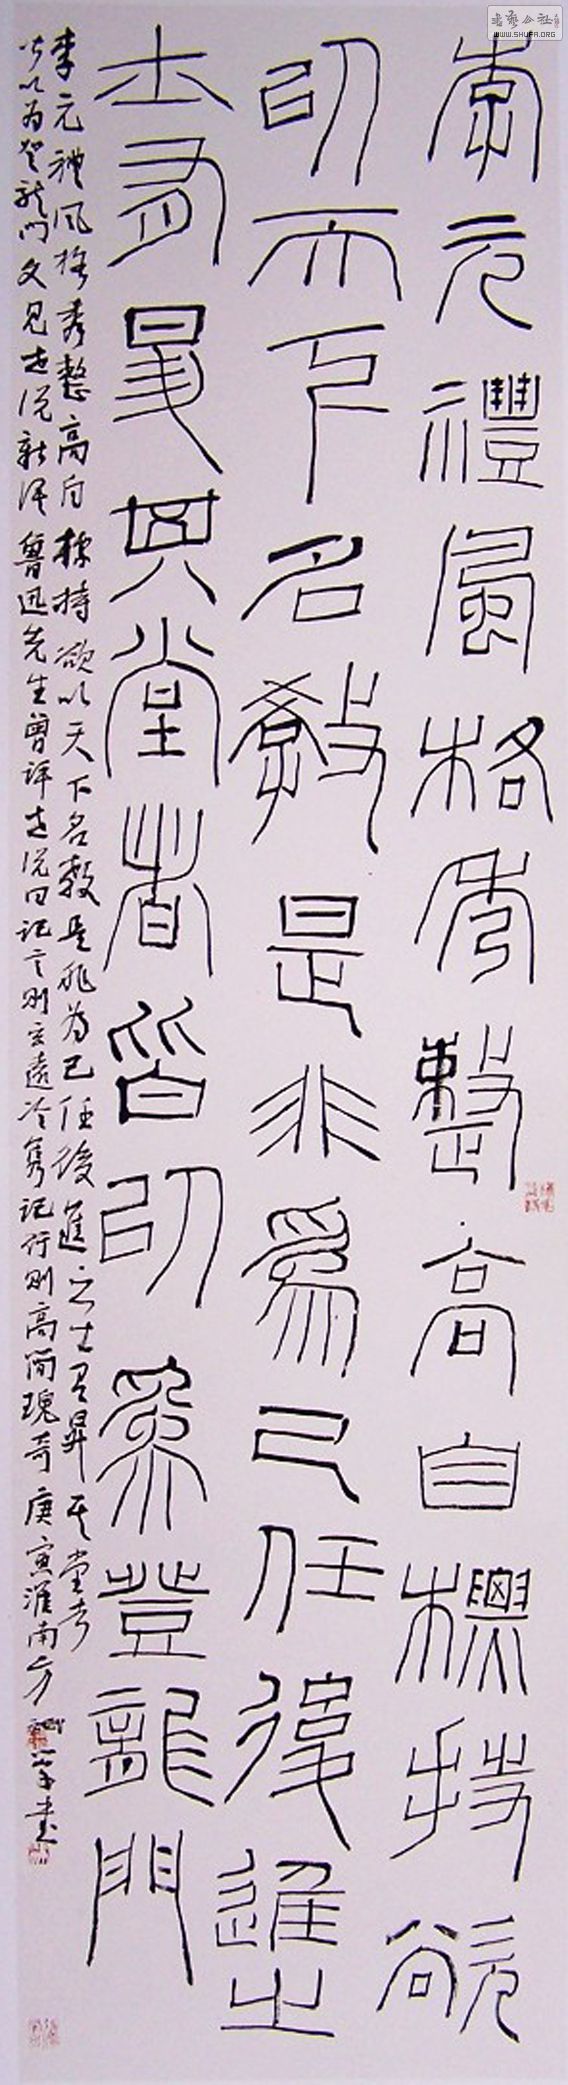 李元禮風格秀整高自標持欲
以天下名教是非為己任後進之
士有昇其堂者皆以為登龍門
李元禮風格秀整高自標持欲以天下名教是非為己任後進之士有昇其堂者
皆以為登龍門文見世說新語魯迅先生曾評世說曰記言則玄遠冷雋記行則高簡瑰奇庚寅淮南方書
书艺公社
WWW.SHUFA.ORG